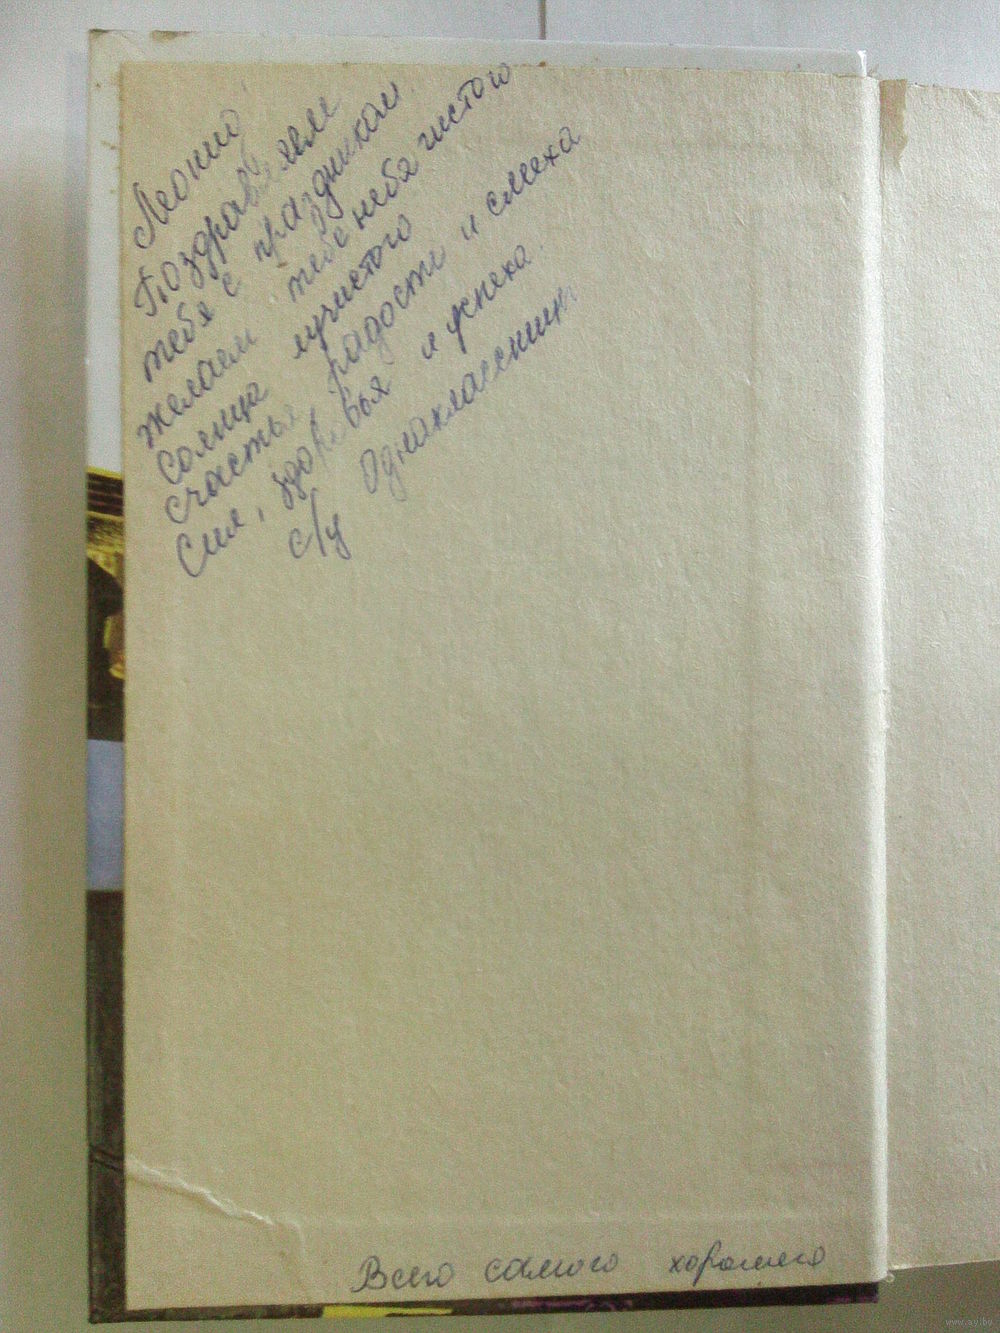 Леонид!
Поздравляем
тебя с праздником.
желаем тебе неба чистого
солнца лучистого
счастья, радости и смеха
Сил, здоровья и успеха.
с/у Одноклассники
Всего самого хорошего
www.ay.by